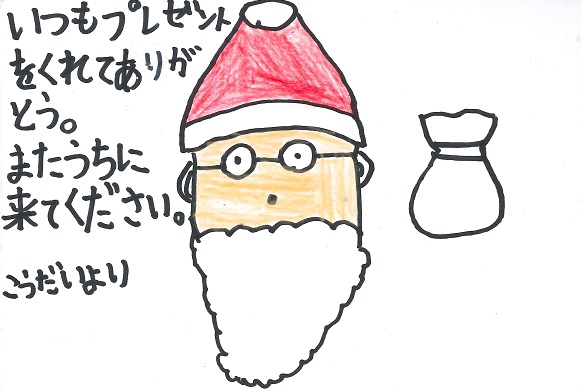 いつもプレゼント
をくれてありが
とう。
またうちに
来てください。
こうだいより